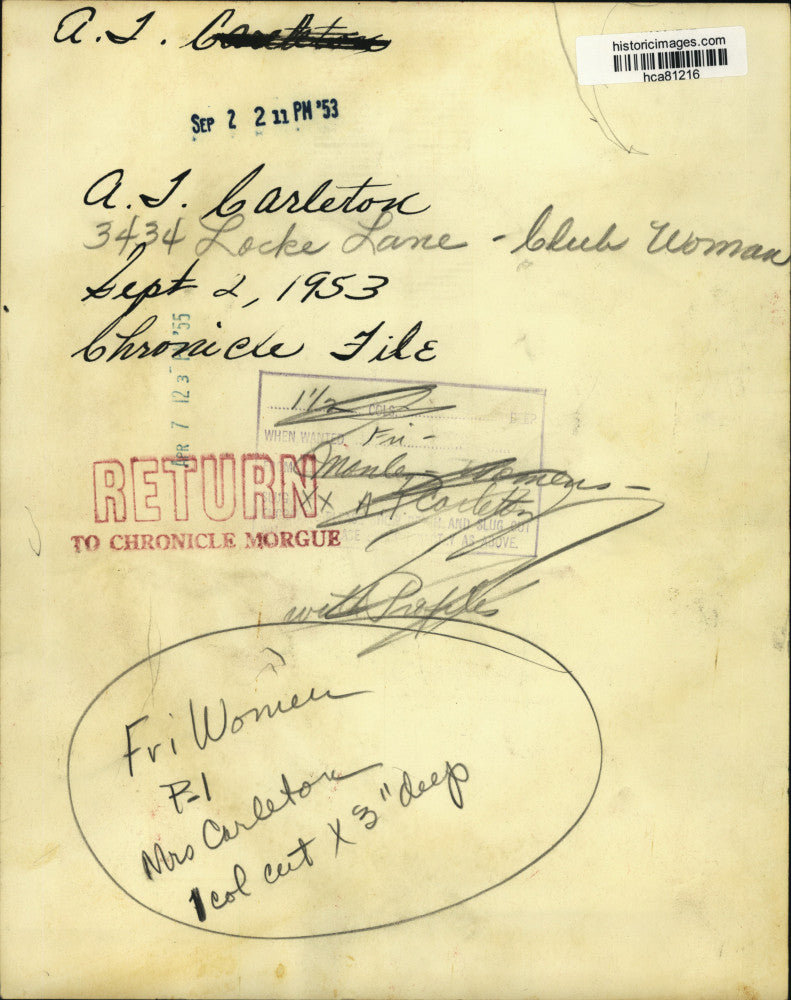 A. J. Carleton
historicimages.com
hca81216
SEP 2 2 11 PM '53
A. J. Carleton
3434 Locke Lane - Club Woman
Sept 2, 1953
Chronicle File
APR 7 12 3 '55
1 1/2 COLS. DEEP
WHEN WANTED Fri-
Womens-
XX A. J. Carleton
AND SLUG OUT
AS ABOVE.
RETURN
TO CHRONICLE MORGUE
with Profiles
Fri Women
P-1
Mrs Carleton
1 col cut X 3" deep